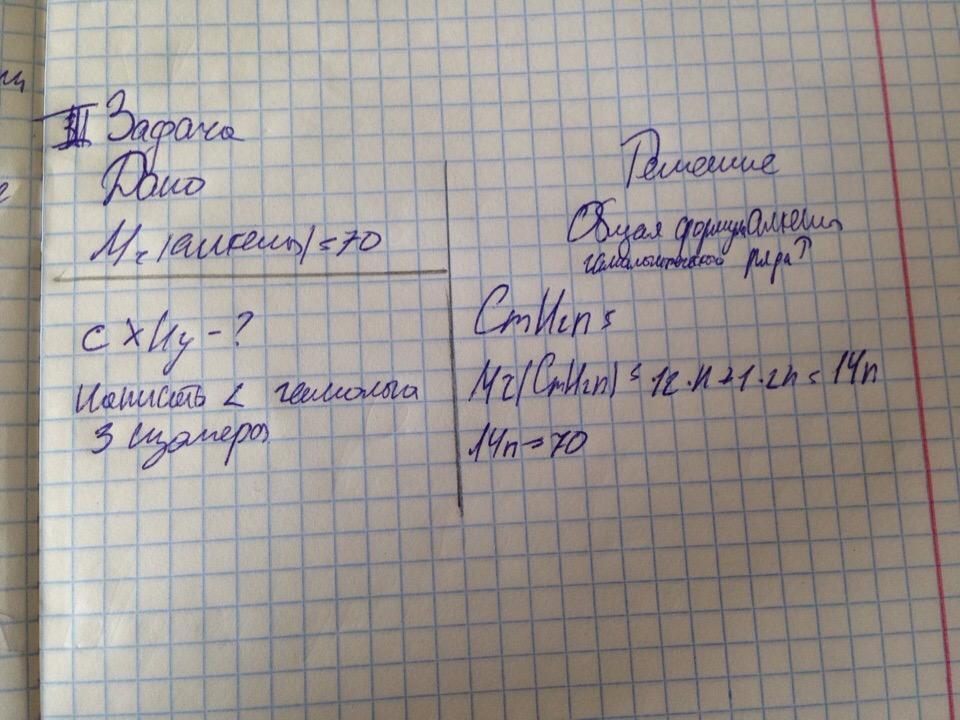 III Задача
Дано
Mr (алкены) = 70
CxHy - ?
Написать 2 гомолога
3 изомера
Решение
Общая формула Алкены
гомологического ряда?
CnH2n =
Mr(CnH2n) = 12·n+1·2n = 14n
14n = 70